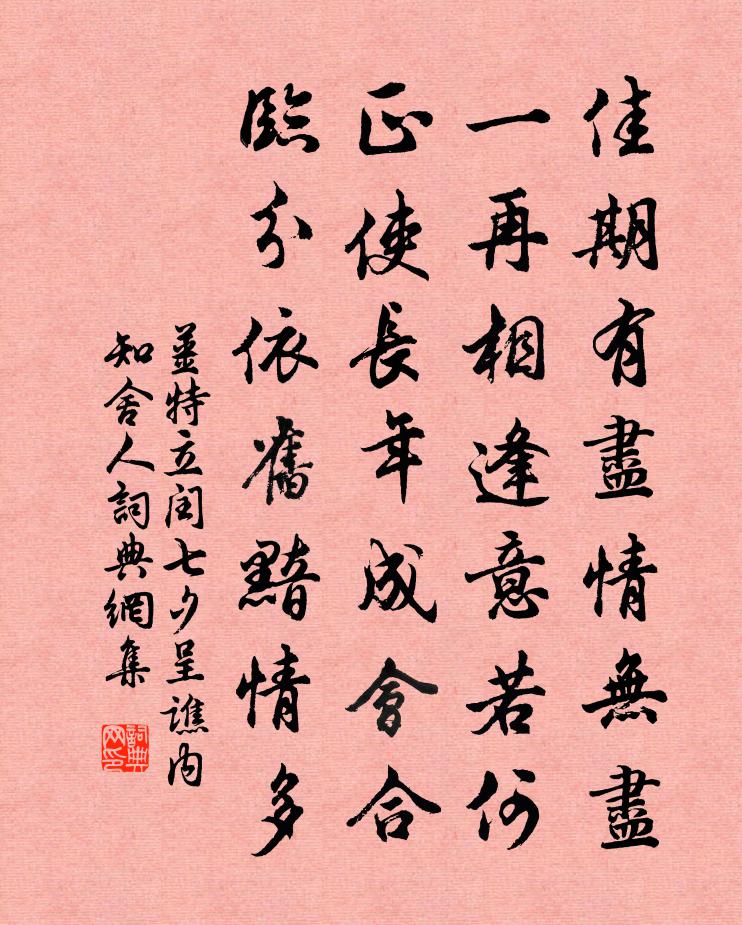 佳期有盡情無盡
一再相逢意若何
正使長年成會合
臨分依舊黯情多
姜特立閏七夕呈譙內
知舍人詞典網集
詞典網印